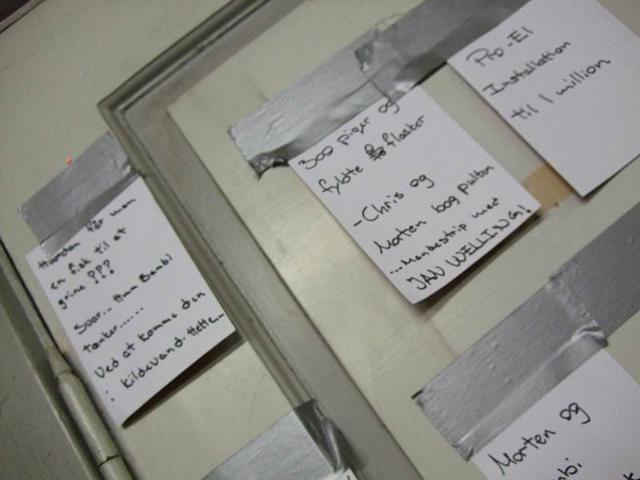 Hvordan får man
en fisk til at
grine ???
Svar... Hmm Bambi
tænker......
Ved at komme den
i kildevand. Hette...
300 piger og
fyldte flasker
-Chris og
Morten bag pulten
...Mandestrip med
JAN WELLING!
Pro-El
Installation
til 1 million
Morten og